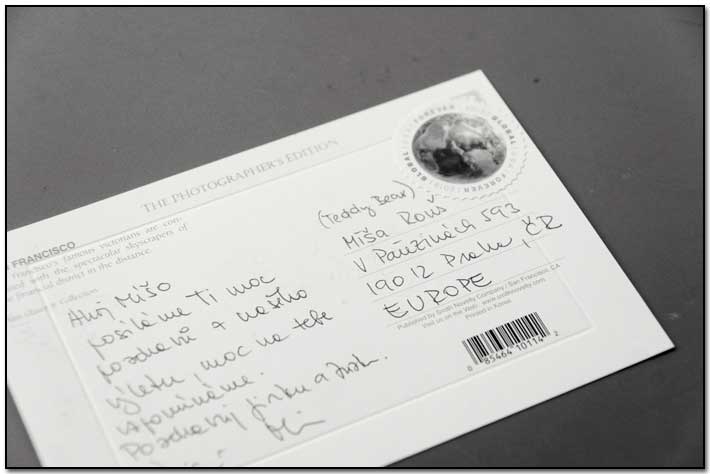 THE PHOTOGRAPHER'S EDITION
GLOBAL FOREVER GLOBAL FOREVER
FRANCISCO
Francisco's famous victorians are con-
with the spectacular skyscrapers of
financial district in the distance.
Collection
Ahoj Míšo
posíláme Ti moc
pozdravů z našeho
výletu, moc na tebe
vzpomínáme.
Pozdravuj Jirku a
(Teddy Bear)
Míša Rouš
V Pažizinách 593
190 12 Praha, ČR
EUROPE
Published by Smith Novelty Company / San Francisco, CA
Visit us on the Web: www.smithnovelty.com
Printed in Korea
0 85464 10114 2